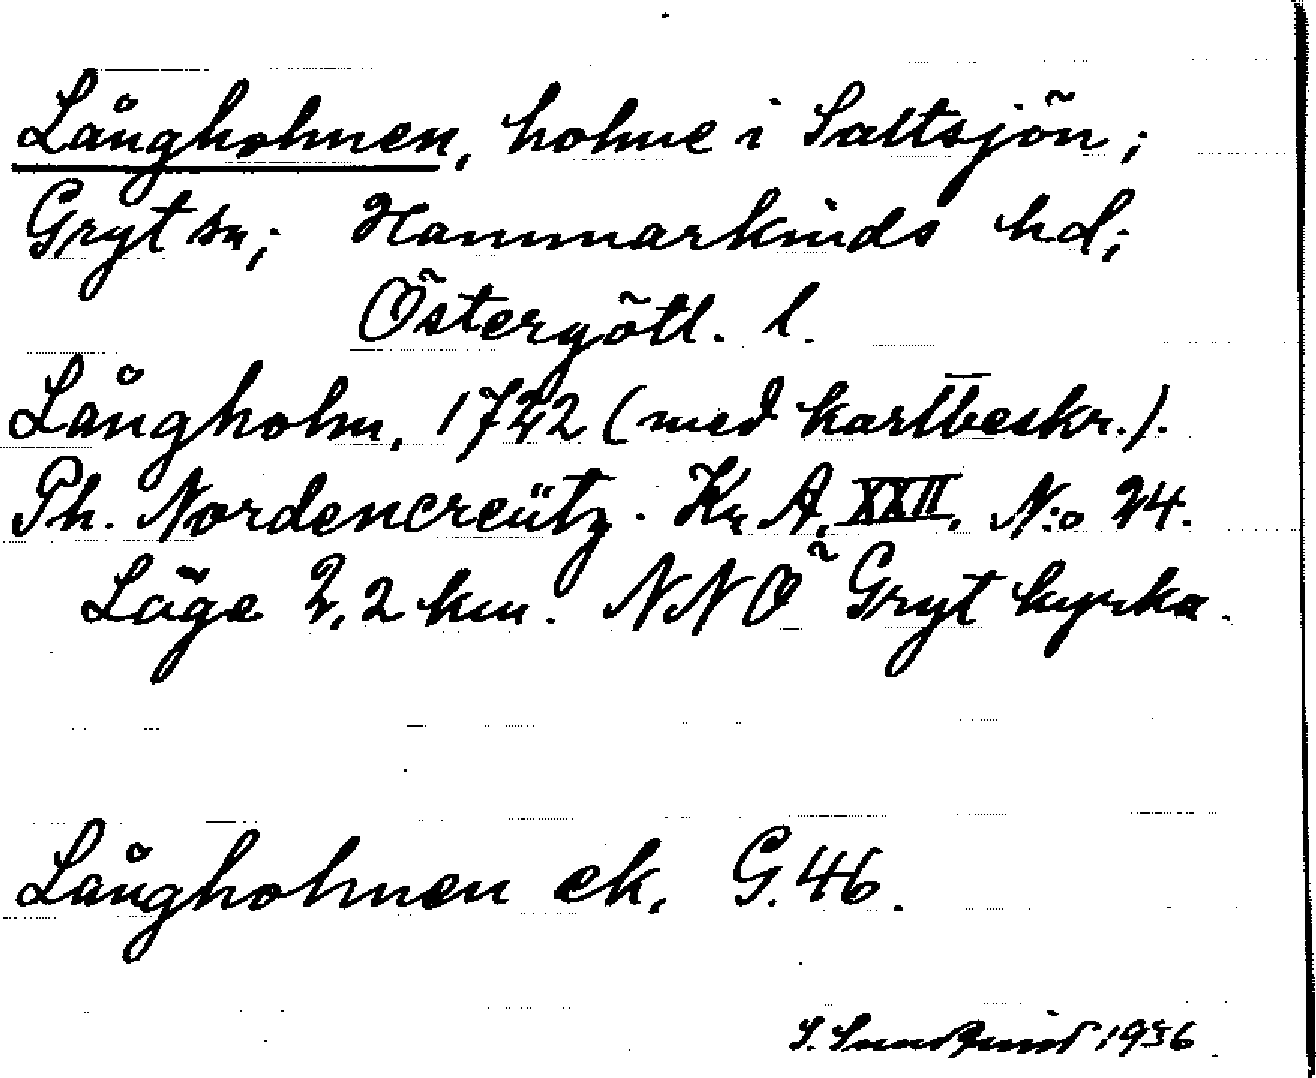 Långholmen, holme i Saltsjön;
Gryt sn; Hammarkinds hd;
Östergötl. l.
Långholm, 1722 (med kartbeskr.).
Ph. Nordencreütz. Kr. A. XXII. N:o 24.
Läge 2,2 km. NNÖ Gryt kyrka.
Långholmen ek. G. 46.
S. Sundquist 1936